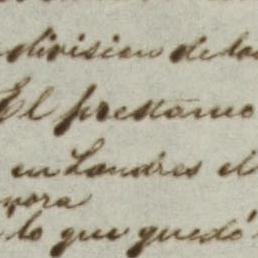 division de la
El prestamo
en Londres el
nora
lo que quedó